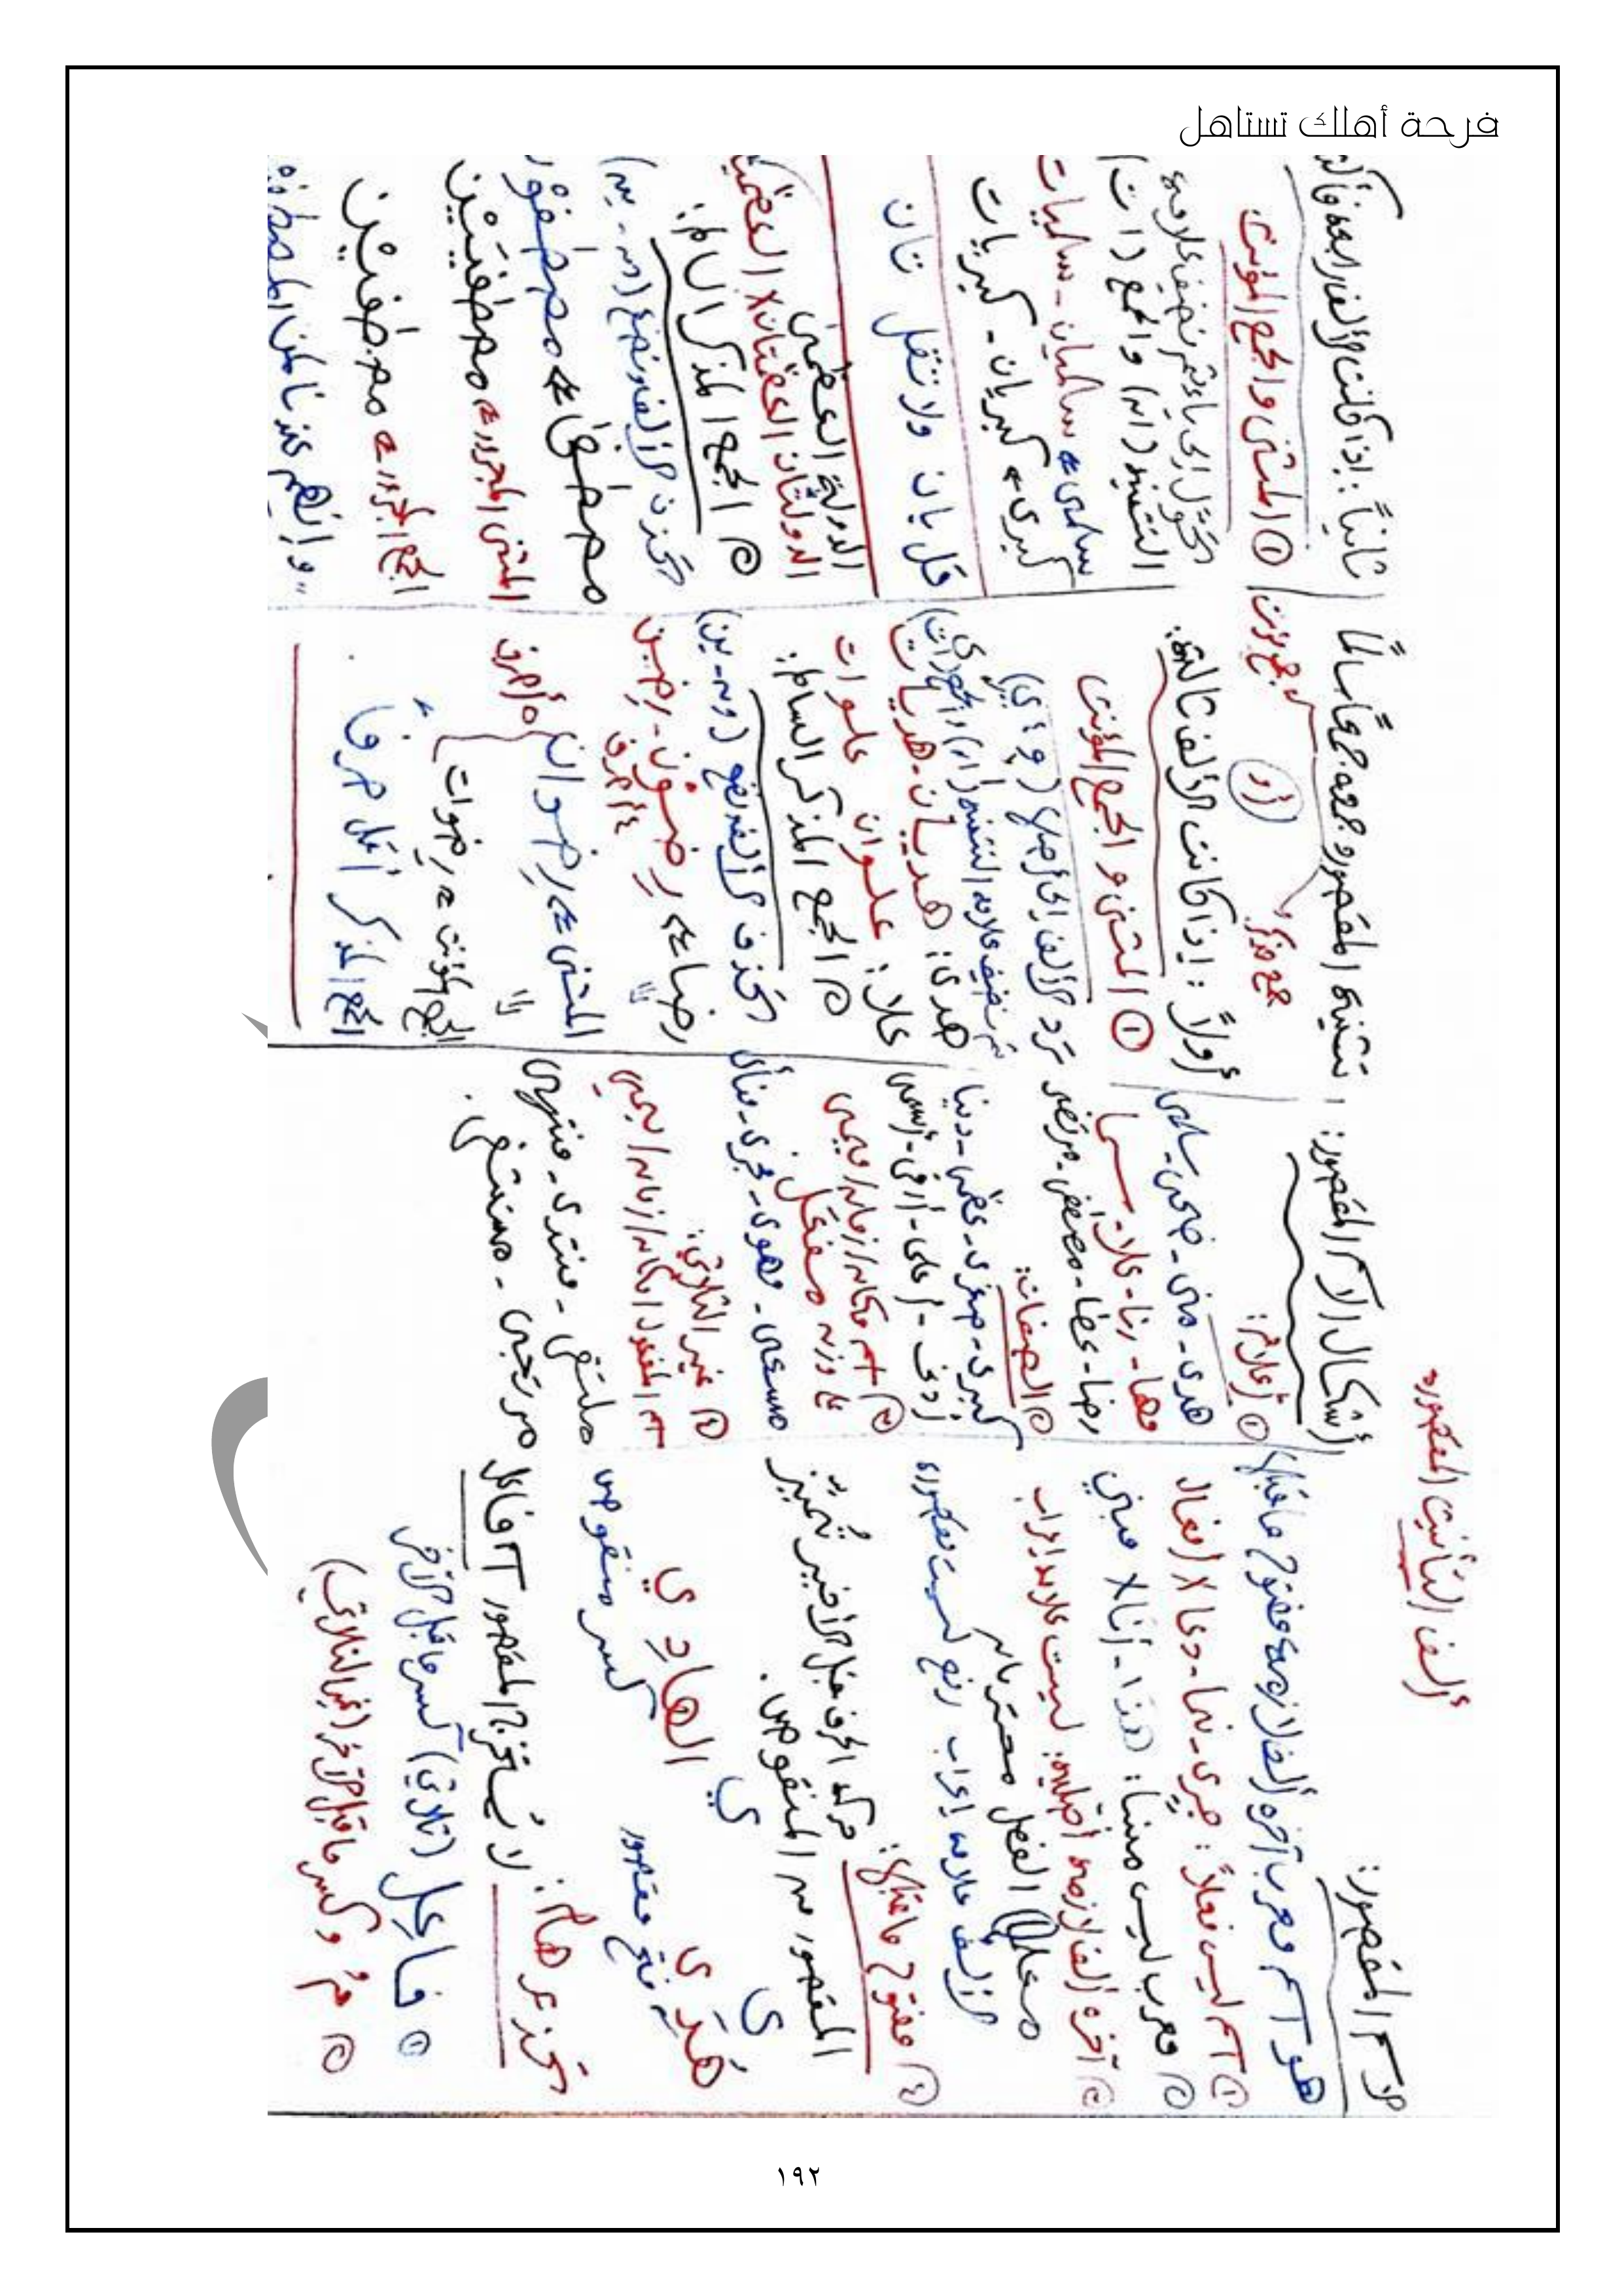 فرحة أهلك تستاهل
ألف التأنيث المقصورة
الاسم المقصور:
هو اسم معرب آخره ألف لازمة مفتوح ما قبلها
① اسم ليس فعلاً: جرى - نما - دعا x أفعال
② معرب ليس مبنياً: (ذا - أنا x مبني
③ آخره ألف لازمة أصلية: ليست علامة إعراب
الألف علامة إعراب رفع ليست مقصورة
④ مفتوح ما قبلها:
حركة الحرف قبل الأخير تُميز
المقصور من المنقوص.
ى ي
هُدَى الهادِي
فتح مقصور كسر منقوص
تحذير هام: لا يُستخرج المقصور اسم فاعل
① فاعِل (ثلاثي) كسر ما قبل الآخر
② مُ وكسر ما قبل الآخر (غير الثلاثي)
أشكال الاسم المقصور:
① أعلام:
هدى - منى - ضحى - سلمى
مها - رنا - علا - سما
رضا - عطا - مصطفى - مرتضى
② الصفات:
كبرى - صغرى - عظمى - دنيا
أدنى - أعلى - أرقى - أسمى
③ اسم مكان/زمان/ميمي
على وزن مفعل.
مسعى - مهوى - مجرى - منأى
④ غير الثلاثي:
اسم المفعول/مكان/زمان/ميمي
ملتقى - منتدى - منتهى
مرتجى - مستشفى.
تثنية المقصور وجمعه جمعاً سالماً
جمع مذكر أو جمع مؤنث
أولاً: إذا كانت الألف ثالثة:
① المثنى والجمع المؤنث
نرد الألف إلى أصلها (و، ي)
ثم نضيف علامة التثنية (ان) والجمع (ات)
هدى: هديان - هديات
علا: علوان علوات
② الجمع المذكر السالم:
تحذف الألف ونضع (ون - ين)
رضا ← رضَوْن - رضَيْن
٤ أحرف
المثنى ← رضوان
٥ أحرف
الجمع المؤنث ← رضوات
الجمع المذكر أقل حرفاً
ثانياً: إذا كانت الألف رابعة فأكثر
① المثنى والجمع المؤنث:
تحوّل إلى ياء ثم نضيف علامة
التثنية (ان) والجمع (ات)
سلمى ← سلميان - سلميات
كبرى ← كبريان - كبريات
قل يان ولا تقل تان
الدولة العظمى
الدولتان العظمتان x العظميان
② الجمع المذكر السالم:
تحذف الألف ونضع (ون - ين)
مصطفى ← مصطفَوْن
المثنى المجرور ← مصطفَيَيْن
الجمع المجرور ← مصطفَيْن
"وإنهم عندنا لمن المصطفين
١٩٢